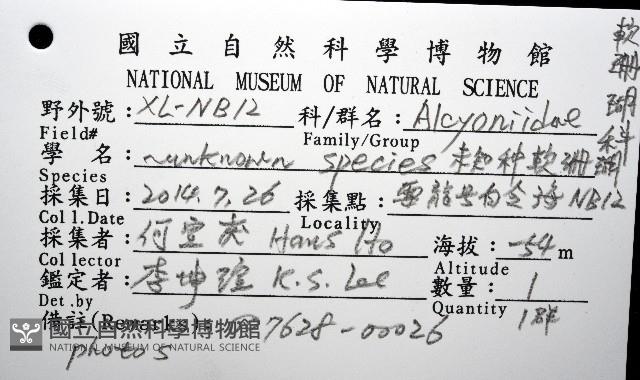 國立自然科學博物館
NATIONAL MUSEUM OF NATURAL SCIENCE
軟珊瑚科
野外號：XL-NB12 科/群名：Alcyoniidae
Field# Family/Group
學 名：unknown species 未知種軟珊瑚
Species
採集日：2014.7.26 採集點：海NB12
Coll.Date Locality
採集者：何宣慶 Hans Ho 海拔：-54 m
Collector Altitude
鑑定者：李坤瑄 K.S. Lee 數量：1
Det.by Quantity 1群
備註(Remarks) 7628-00026
photos
國立自然科學博物館
NATIONAL MUSEUM OF NATURAL SCIENCE